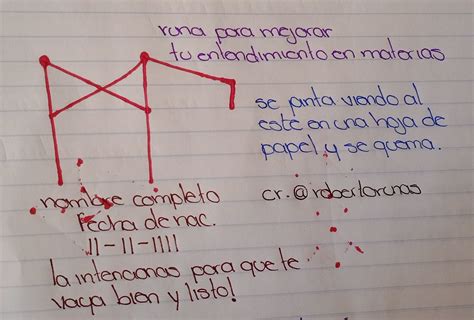 runa para mejorar
tu entendimiento en materias
se pinta viendo al
este en una hoja de
papel y se quema.
nombre completo
fecha de nac.
11-11-1111
cr. @robertorunas
la intencionas para que te
vaya bien y listo!